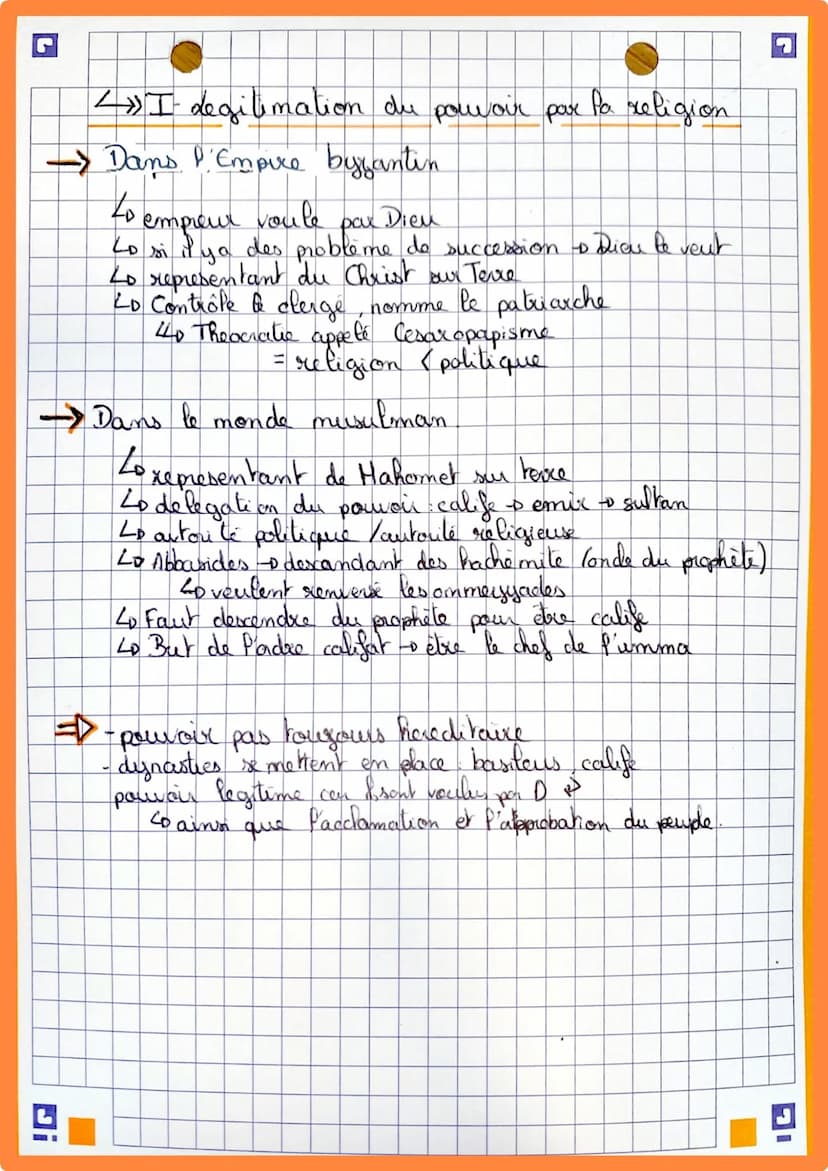 I - Legitimation du pouvoir par la religion
→ Dans l'Empire byzantin
↳ empreur voulé par Dieu
↳ si il ya des problème de succession → Dieu le veut
↳ representant du Christ sur Terre
↳ Contrôle le clergé, nomme le patriarche
↳ Theocratie appelé Cesaropapisme
= religion < politique
→ Dans le monde musulman.
↳ representant de Mahomet sur terre
↳ délegation du pouvoir : calife → emir → sultan
↳ autorité politique / autorité religieuse
↳ Abbasides → descandant des hachémite (oncle du prophète)
↳ veulent renversé les ommeyyades
↳ Faut descendre du prophète pour être calife
↳ But de l'ordre califat → être le chef de l'umma
⇒ - pouvoir pas toujours héreditaire
- dynasties se mettent en place : basileus, calife
pouvoir legitime car ils sont voulus par D
↳ ainsi que l'acclamation et l'approbation du peuple.